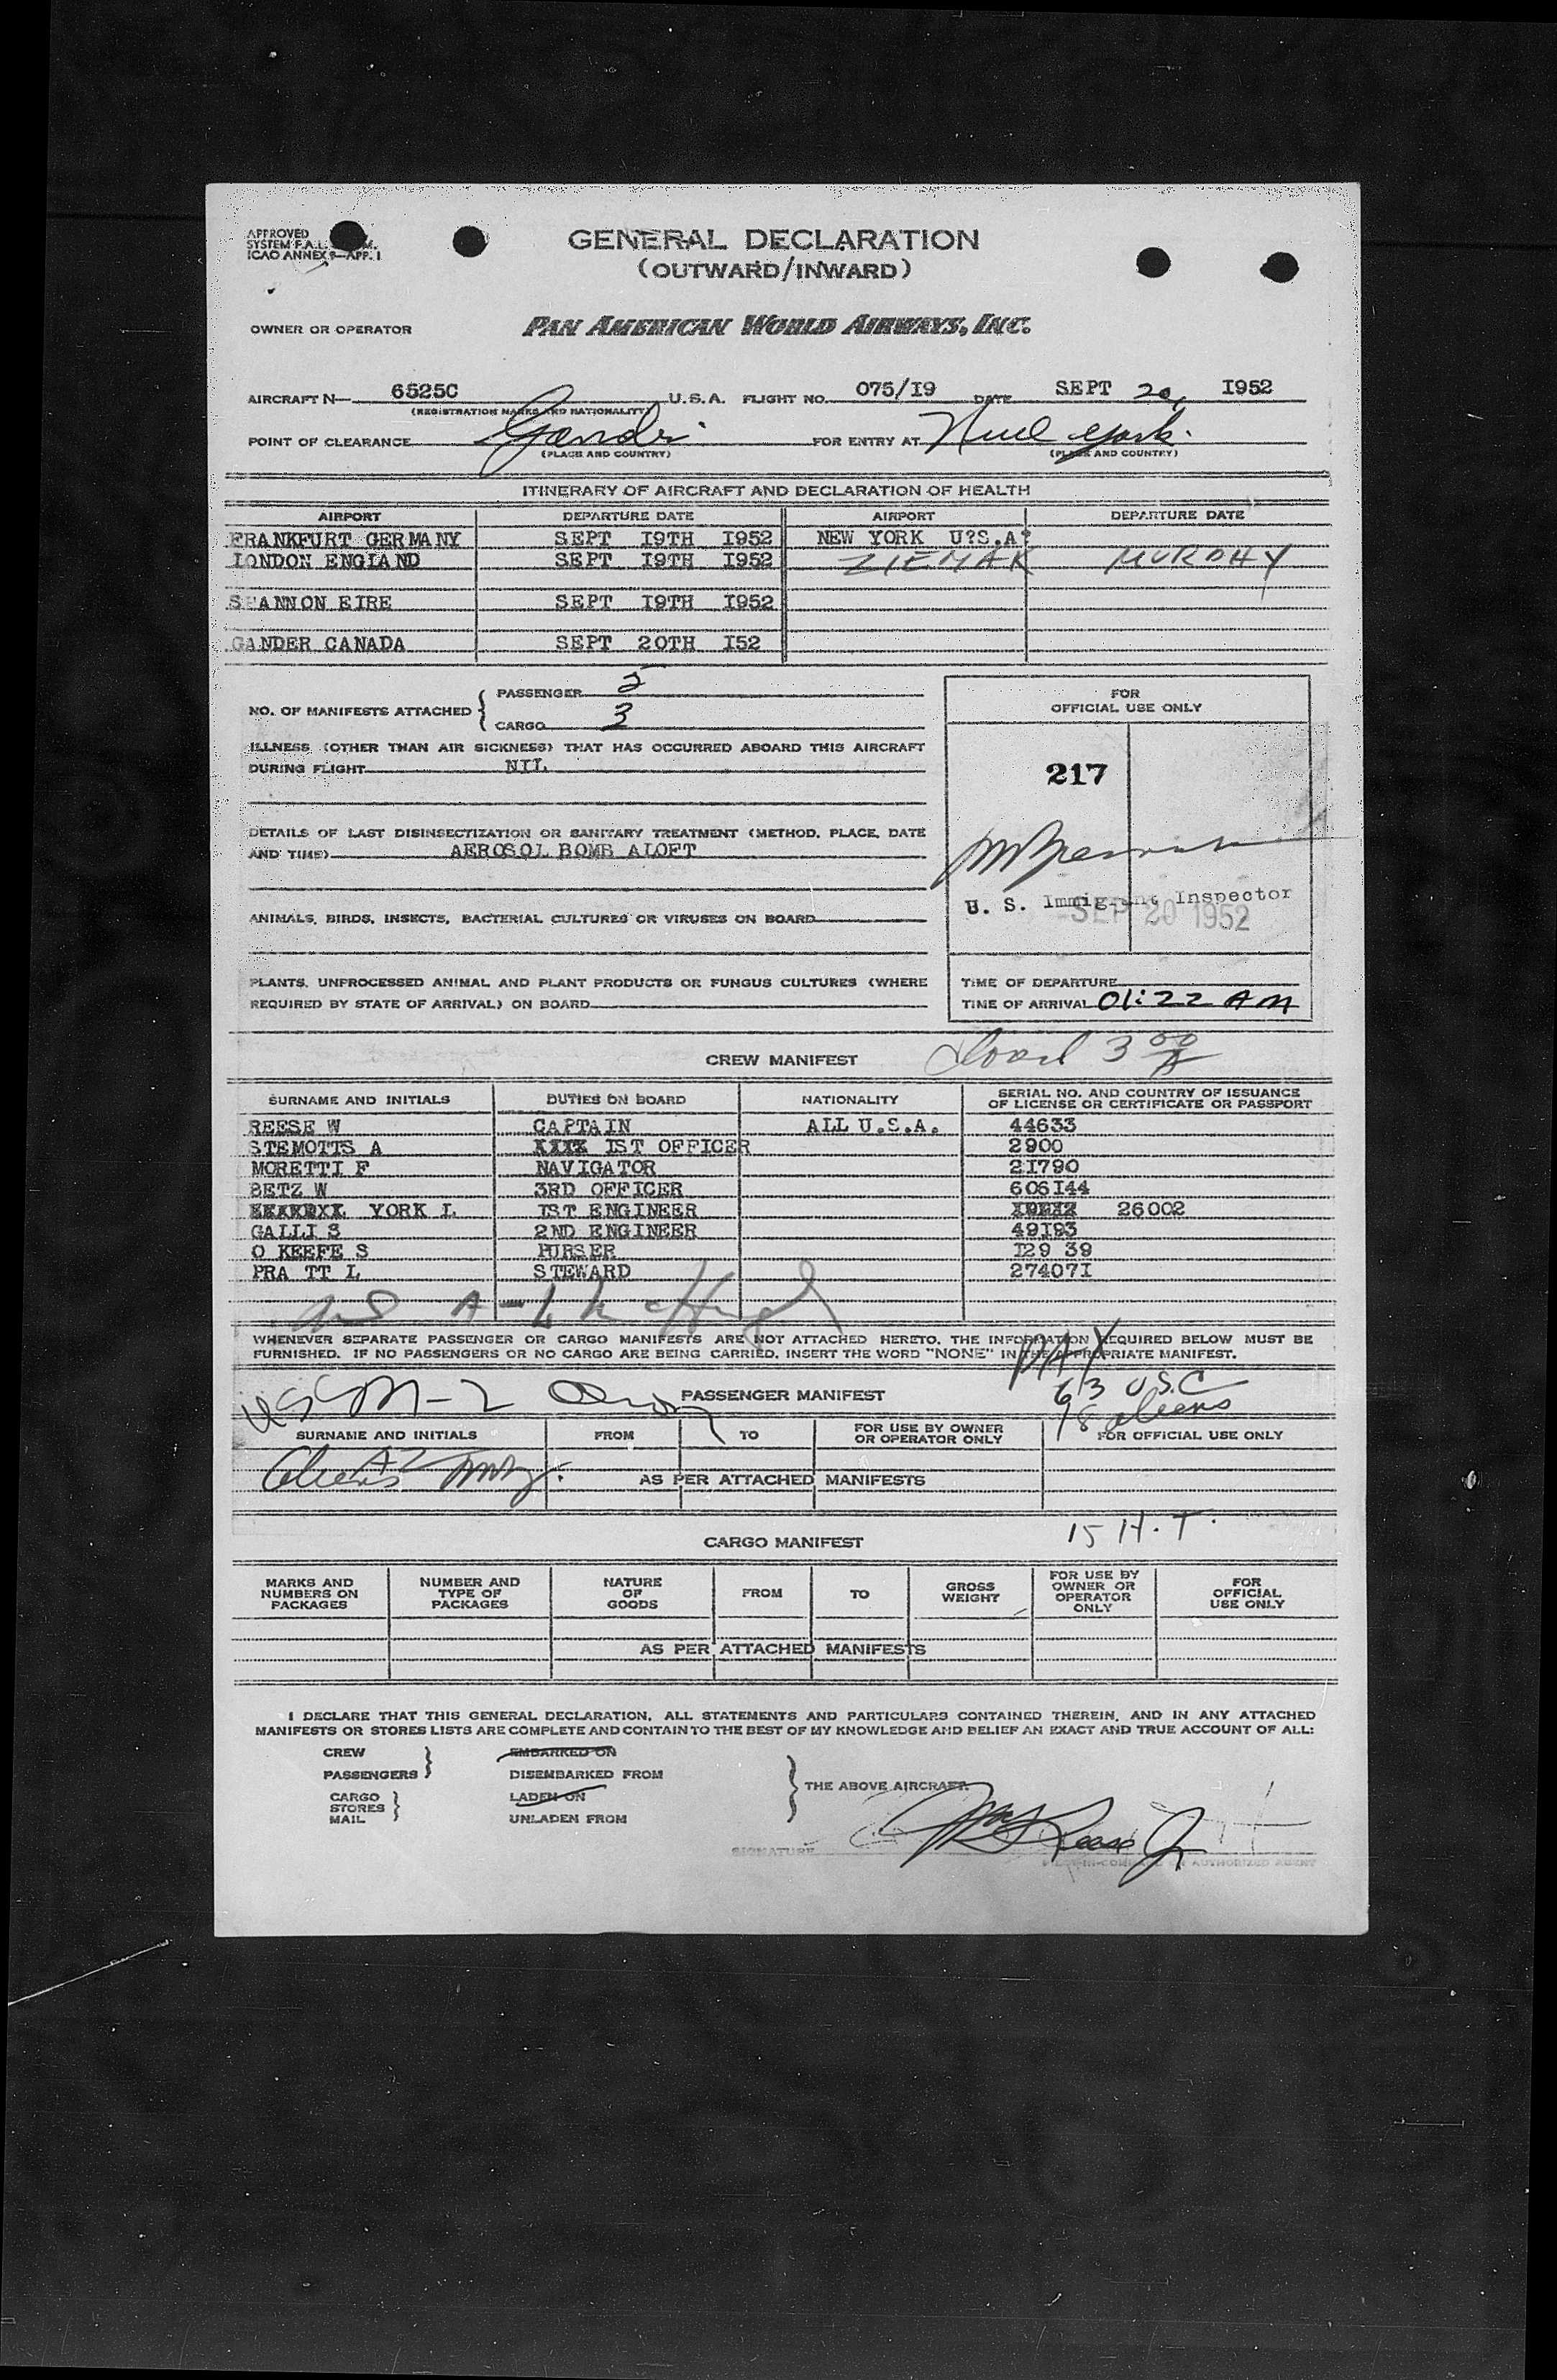 APPROVED
SYSTEM F.A.L. M.
ICAO ANNEX 9—APP. 1
GENERAL DECLARATION
(OUTWARD/INWARD)
OWNER OR OPERATOR PAN AMERICAN WORLD AIRWAYS, INC.
AIRCRAFT N— 6525C U.S.A. FLIGHT NO. 075/I9 DATE SEPT 20, I952
(REGISTRATION MARKS AND NATIONALITY)
POINT OF CLEARANCE Gander FOR ENTRY AT New York
(PLACE AND COUNTRY) (PLACE AND COUNTRY)
ITINERARY OF AIRCRAFT AND DECLARATION OF HEALTH
AIRPORT DEPARTURE DATE AIRPORT DEPARTURE DATE
FRANKFURT GERMANY SEPT I9TH I952 NEW YORK U?S.A?
LONDON ENGLAND SEPT I9TH I952 ZIEMAK MURPHY
SHANNON EIRE SEPT I9TH I952
GANDER CANADA SEPT 20TH I52
NO. OF MANIFESTS ATTACHED { PASSENGER 5
CARGO 3
FOR
OFFICIAL USE ONLY
ILLNESS (OTHER THAN AIR SICKNESS) THAT HAS OCCURRED ABOARD THIS AIRCRAFT
DURING FLIGHT NIL
217
DETAILS OF LAST DISINSECTIZATION OR SANITARY TREATMENT (METHOD, PLACE, DATE
AND TIME) AEROSOL BOMB ALOFT
U. S. Immigrant Inspector
SEP 20 1952
ANIMALS, BIRDS, INSECTS, BACTERIAL CULTURES OR VIRUSES ON BOARD
PLANTS, UNPROCESSED ANIMAL AND PLANT PRODUCTS OR FUNGUS CULTURES (WHERE
REQUIRED BY STATE OF ARRIVAL) ON BOARD
TIME OF DEPARTURE
TIME OF ARRIVAL 01:22 AM
CREW MANIFEST 3 00
SURNAME AND INITIALS DUTIES ON BOARD NATIONALITY SERIAL NO. AND COUNTRY OF ISSUANCE
OF LICENSE OR CERTIFICATE OR PASSPORT
REESE W CAPTAIN ALL U.S.A. 44633
STEMOTTS A IST OFFICER 2900
MORETTI F NAVIGATOR 2I790
BETZ W 3RD OFFICER 606I44
YORK L IST ENGINEER 26002
GALLI S 2ND ENGINEER 49I93
O KEEFE S PURSER I29 39
PRA TT L STEWARD 27407I
WHENEVER SEPARATE PASSENGER OR CARGO MANIFESTS ARE NOT ATTACHED HERETO, THE INFORMATION REQUIRED BELOW MUST BE
FURNISHED. IF NO PASSENGERS OR NO CARGO ARE BEING CARRIED, INSERT THE WORD "NONE" IN THE APPROPRIATE MANIFEST.
PAX
PASSENGER MANIFEST
63 U.S.C
18 aliens
SURNAME AND INITIALS FROM TO FOR USE BY OWNER
OR OPERATOR ONLY FOR OFFICIAL USE ONLY
Aliens
AS PER ATTACHED MANIFESTS
15 H.T.
CARGO MANIFEST
MARKS AND
NUMBERS ON
PACKAGES
NUMBER AND
TYPE OF
PACKAGES
NATURE
OF
GOODS
FROM
TO
GROSS
WEIGHT
FOR USE BY
OWNER OR
OPERATOR
ONLY
FOR
OFFICIAL
USE ONLY
AS PER ATTACHED MANIFESTS
I DECLARE THAT THIS GENERAL DECLARATION, ALL STATEMENTS AND PARTICULARS CONTAINED THEREIN, AND IN ANY ATTACHED
MANIFESTS OR STORES LISTS ARE COMPLETE AND CONTAIN TO THE BEST OF MY KNOWLEDGE AND BELIEF AN EXACT AND TRUE ACCOUNT OF ALL:
CREW EMBARKED ON
PASSENGERS DISEMBARKED FROM
THE ABOVE AIRCRAFT.
CARGO LADEN ON
STORES
MAIL UNLADEN FROM
SIGNATURE Wm Reese Jr
PILOT-IN-COMMAND OR AUTHORIZED AGENT